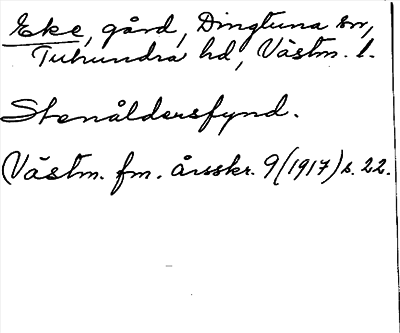 Eke, gård, Dingtuna sn,
Tuhundra hd, Västm. l.
Stenåldersfynd.
Västm. fm. årsskr. 9 (1917) s. 22.